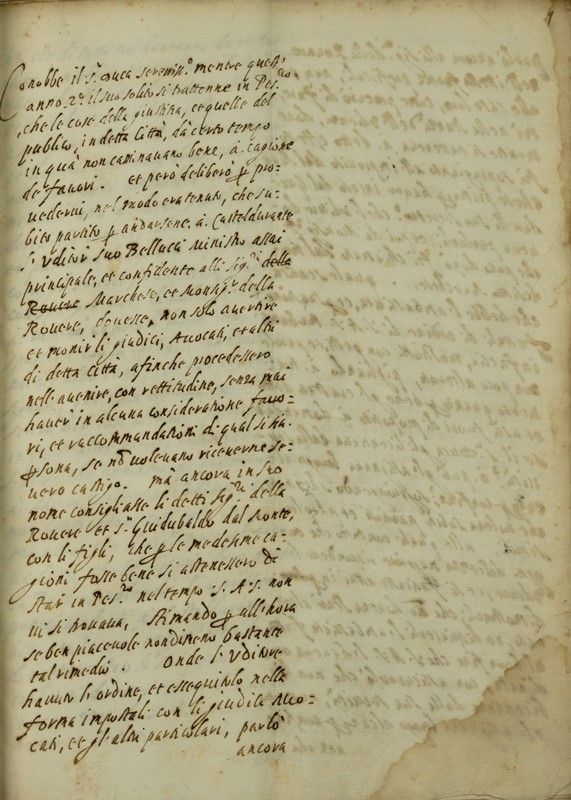 Conobbe il s.r Duca seren.mo mentre quest'
anno 2.o il suo solito si trattenne in Pes.ro
che le cose della giustitia, et quelle del
publico, in detta Città, da certo tempo
in quà non caminauano bene, à cagione
de fauori. et però deliberò p pro=
uederui, nel modo era tenuto, che su=
bito partito p andarsene à Casteldurante
l'Vditor suo Bellucci ministro assai
principale, et confidente alli Sig.ri della
Rouere Marchese, et Monsig.r della
Rouere, douesse, non solo auertire
et monir li giudici, Auocati, et altri
di detta Città, afinche procedessero
nell'auenire, con rettitudine, senza mai
hauer in alcuna consideratione fauo=
ri, et raccommandationi di qual si sia
psona, se nō uoleuano riceuerne se=
uero castigo. mà ancora in suo
nome consigliasse li detti Sig.ri della
Rouere et s.r Guidubaldo dal Monte,
con li figli, che p le medesime ca=
gioni fosse bene si astenessero di
star in Pes.ro nel tempo S. A. S. non
ui si trouaua, stimando p all'hora
se ben piaceuole nondimeno bastante
tal rimedio. Onde l'Vditore
hauuto l'ordine, et esseguitolo nella
forma impostali con li giudici Auo=
cati, et gl'altri particolari, parlò
ancora